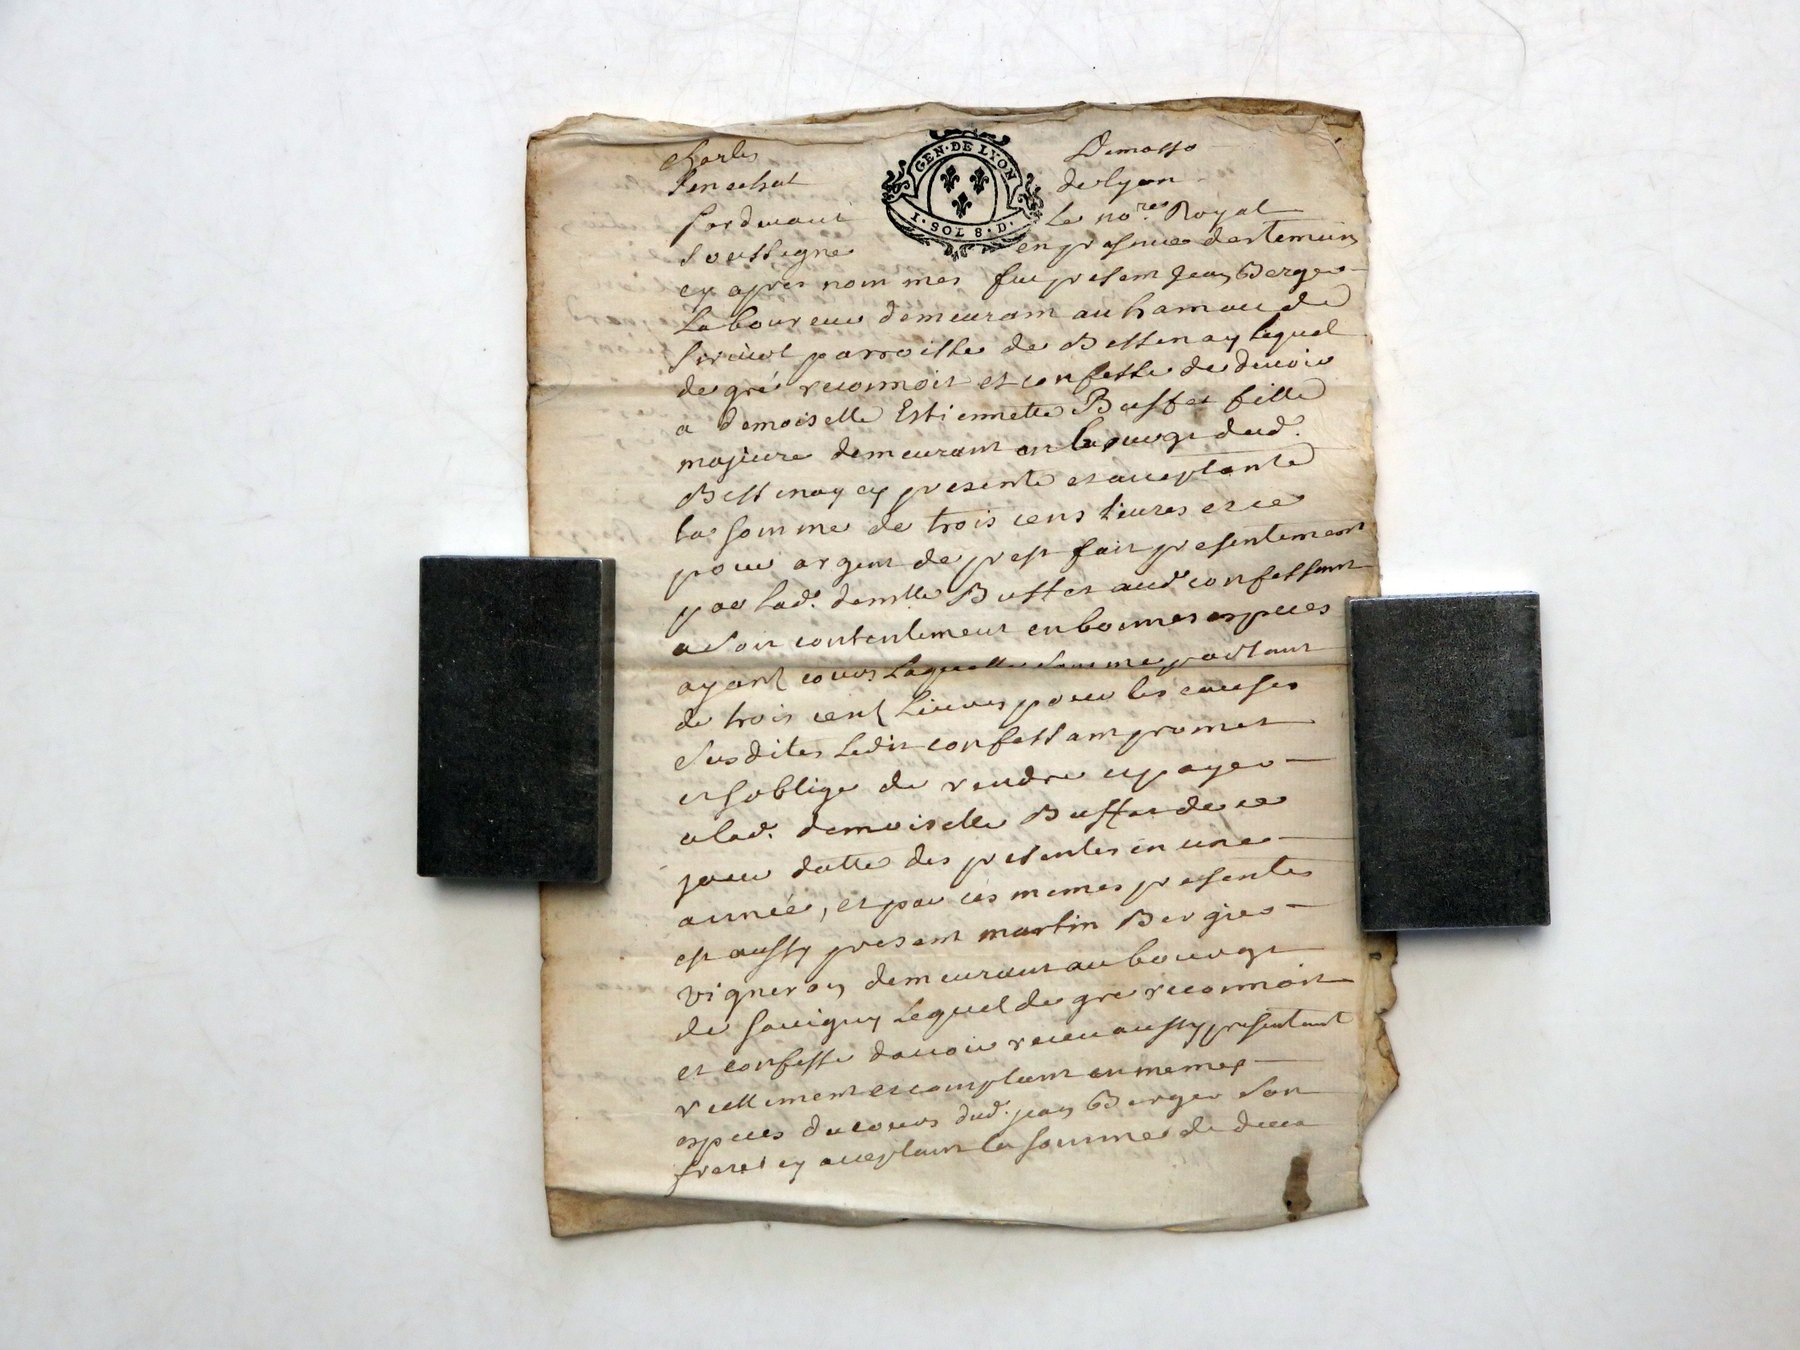 GEN·DE LYON
I·SOL 8·D·
Charles Demasso
Senechal de Lyon
Pardevant Le no.res Royal
Soussigne en presence des temoins
cy apres nommes fut present Jean Berger
Laboureur demeurant au hameau de
parroisse de Bessenay lequel
de gré reconnoit et confesse de devoir
a demoiselle Estiennette Buffet fille
majeure demeurant en bourg dud.
Bessenay cy presente et acceptante
la somme de trois cens livres et ce
pour argent de prest fait presentement
par lad. demlle Buffet aud. confessant
avoir contentement en bonnes especes
ayant cours Laquelle somme partant
de trois cent Livres pour les causes
susdites Ledit confessant promet
et soblige de rendre et payer
a lad. demoiselle Buffet de ce
jour datte des presentes en une
année, et par ces memes presentes
est aussy present martin Bergier
vigneron demeurant au bourgt
de Savigny Lequel de gre reconnoit
et confesse davoir receu aussy presentement
reellement et comptant en memes
especes du cours dud. jean Berger son
frere cy acceptant la somme de deux